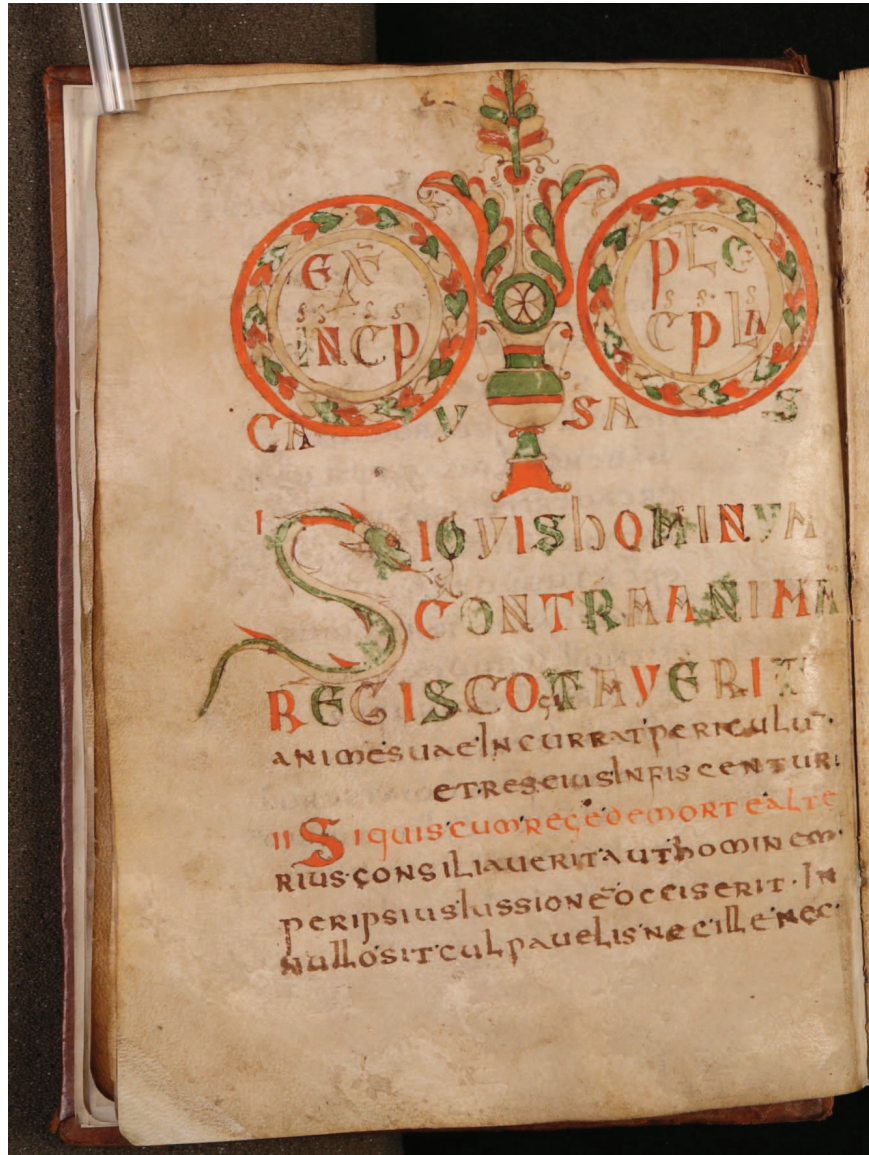 EXP̄
INCP
PLE
CPLA
CAYSAS
I SIQVIS hOMINVM
CONTRA ANIMA
REGIS COGTAVERIT
ANIMESUAE INCURRAT PERICULUM̄·
ET RES EIUS INFISCENTURI
II SI QUIS CUM REGE DE MORTE ALTE
RIUS CONSILIAVERIT AUT hOMINEM·
PER IPSIUS IUSSIONĒ OCCISERIT· IN
NULLO SIT CULPAVELIS NEC ILLE NEC·